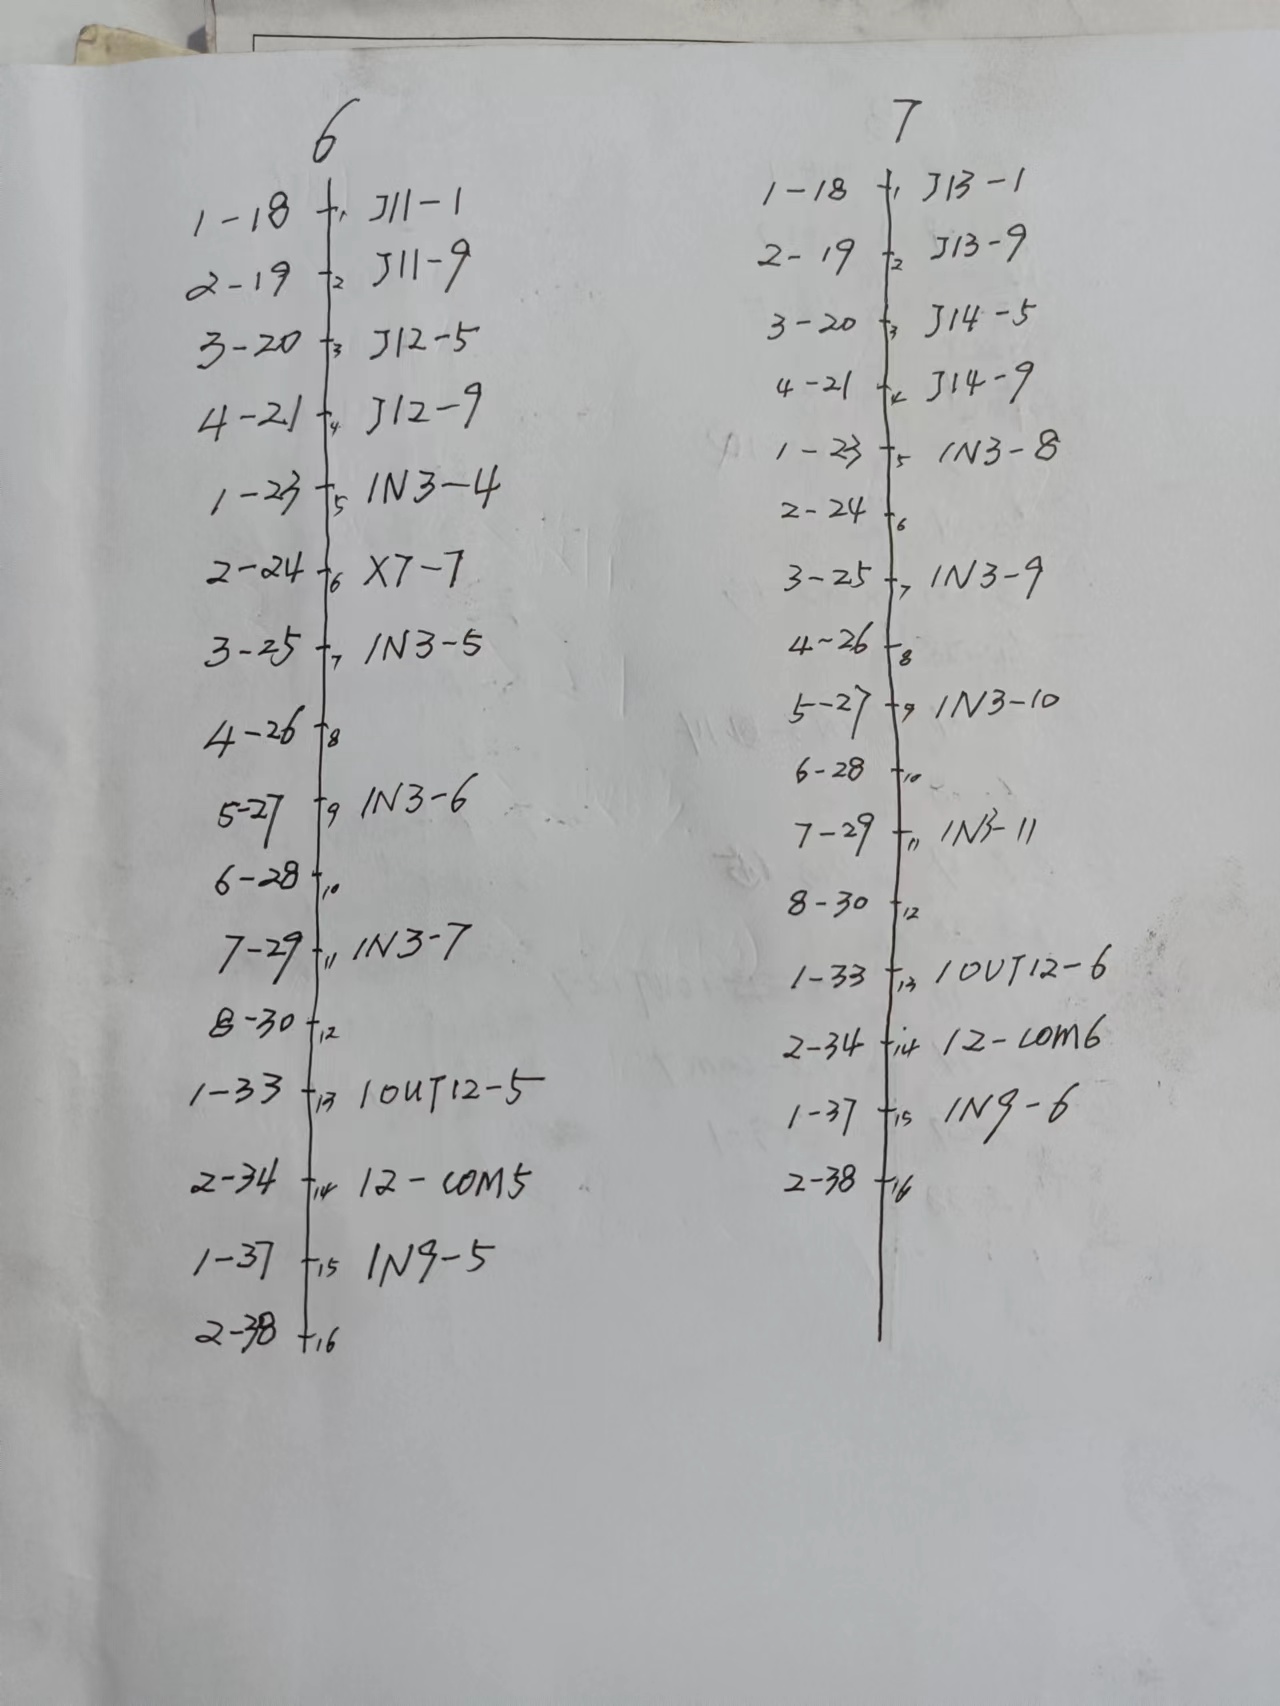 6
1-18 1 J11-1
2-19 2 J11-9
3-20 3 J12-5
4-21 4 J12-9
1-23 5 IN3-4
2-24 6 X7-7
3-25 7 IN3-5
4-26 8
5-27 9 IN3-6
6-28 10
7-29 11 IN3-7
8-30 12
1-33 13 IOUT12-5
2-34 14 12-COM5
1-37 15 IN9-5
2-38 16
7
1-18 1 J13-1
2-19 2 J13-9
3-20 3 J14-5
4-21 4 J14-9
1-23 5 IN3-8
2-24 6
3-25 7 IN3-9
4-26 8
5-27 9 IN3-10
6-28 10
7-29 11 IN3-11
8-30 12
1-33 13 IOUT12-6
2-34 14 12-COM6
1-37 15 IN9-6
2-38 16